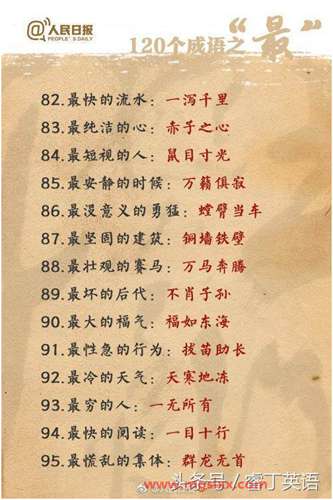 @人民日报
PEOPLE'S DAILY
120个成语之“最”
82.最快的流水：一泻千里
83.最纯洁的心：赤子之心
84.最短视的人：鼠目寸光
85.最安静的时候：万籁俱寂
86.最没意义的勇猛：螳臂当车
87.最坚固的建筑：铜墙铁壁
88.最壮观的赛马：万马奔腾
89.最坏的后代：不肖子孙
90.最大的福气：福如东海
91.最性急的行为：拔苗助长
92.最冷的天气：天寒地冻
93.最穷的人：一无所有
94.最快的阅读：一目十行
95.最慌乱的集体：群龙无首
头条号／睿丁英语